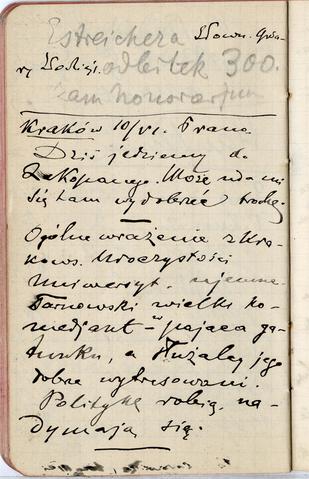 Estreichera Słown. Gwa-
ry
odbitek 300.
zam honorarjum
Kraków 10/VI. Franc.
Dziś jedziemy do
Zakopanego. Może uda mi
się tam wydobrzeć trochę.
Ogólne wrażenie z Kra-
kows. Uroczystości
Uniwersyt. ujemne.
Tarnowski wielki ko-
medjant – pajaca ga-
tunku, a służalcy jego
dobrze wytresowani.
Politykę robią, na-
dymają się.